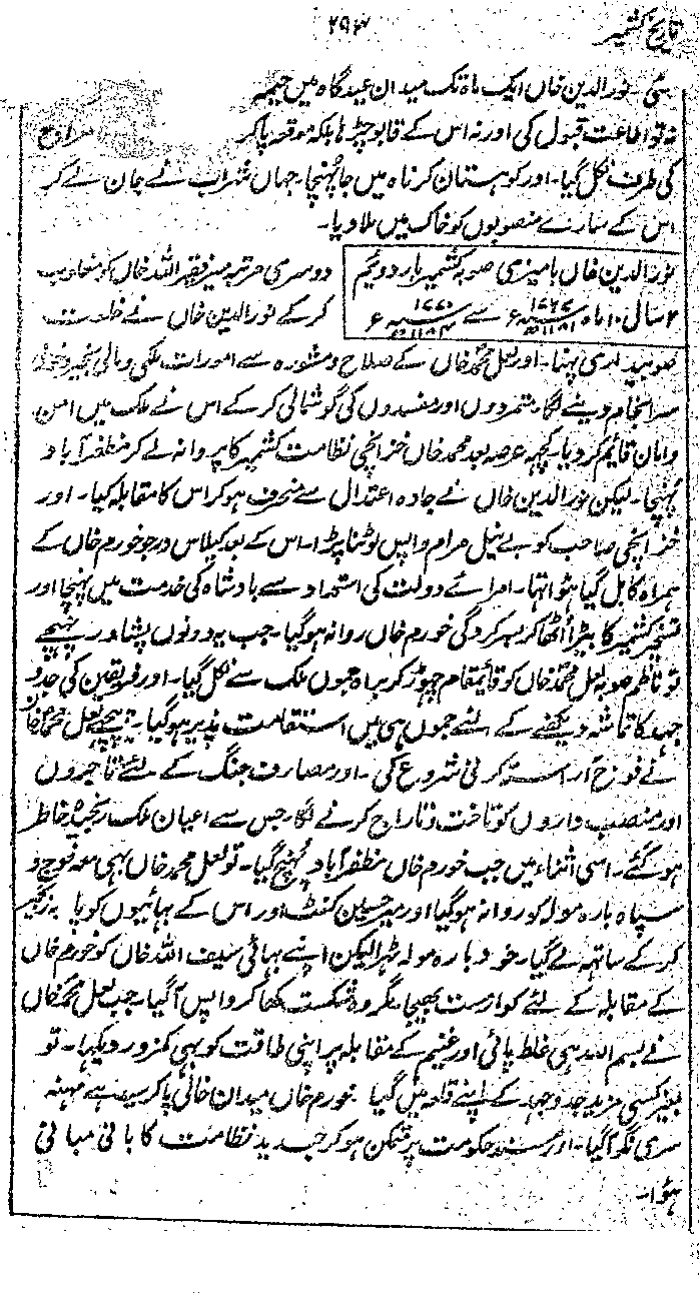 تاریخ کشمیر
۲۹۳
نورالدین خاں ایک ماہ تک میدان عیدگاہ میں خیمہ
نہ تو اطاعت قبول کی اور نہ اس کے قابو چڑہا بلکہ موقعہ پاکر
کی طرف نکل گیا۔ اور کوہستان کرناہ میں جا پہُنچا۔ جہاں شراب نے جان لے کر
اس کے سارے منصوبوں کو خاک میں ملا دیا۔
نورالدین خاں بامیزی صوبہ کشمیر بار دوئیم
۲ سال ۱۰ ماہ سے
دوسری مرتبہ میر فقیر اللہ خاں کو مغلوب
کرکے نورالدین خاں نے خلعت
صوبیداری پہنا۔ اور لعل محمد خاں کے صلاح و مشورہ سے امورات ملکی و مالی بخیر و خوبی
سرانجام دینے لگا۔ متمردوں اور مفسدوں کی گوشمالی کرکے اس نے ملک میں امن
وامان قایم کر دیا۔ کچہہ عرصہ بعد محمد خاں خزانچی نظامت کشمیر کا پروانہ لے کر مظفر آباد
پہُنچا۔ لیکن نورالدین خاں نے جادہ اعتدال سے منحرف ہوکر اس کا مقابلہ کیا۔ اور
خزانچی صاحب کو بے نیل مرام واپس لوٹنا پڑا۔ اس کے بعد کیلاس در جو خورم خاں کے
ہمراہ کابل گیا ہوُا تہا۔ امرائے دولت کی استمداد سے بادشاہ کی خدمت میں پہنچا اور
تسخیر کشمیر کا بیڑا اُٹھا کر بسرکردگی خورم خاں روانہ ہوگیا۔ جب یہ دونوں پشاور پہنچے
تو ناظم صوبہ لعل محمد خاں کو قائمقام چہوڑ کر براہ جموں ملک سے نکل گیا۔ اور فریقین کی جدو
جہد کا تماشہ دیکھنے کے لئے جموں ہی میں استقامت پذیر ہوگیا۔ پیچھے لعل محمد خاں
نے فوج آراستہ کرنی شروع کی۔ اور مصارف جنگ کے لئے تاجروں
اور منصب داروں کو تاخت و تاراج کرنے لگا۔ جس سے اعیان ملک رنجیدہ خاطر
ہوگئے۔ اسی اثناء میں جب خورم خاں مظفرآباد پہُنچ گیا۔ تو لعل محمد خاں بہی معہ فوج و
سپاہ بارہ مولہ کو روانہ ہوگیا اور میر حسین کنٹ اور اس کے بہائیوں کو پا بہ زنجیر
کرکے ساتہہ لے گیا۔ خود بارہ مولہ ٹہرا لیکن اپنے بہائی سیف اللہ خاں کو خورم خاں
کے مقابلہ کے لئے کوارست بھیجا۔ مگر وہ شکست کھا کر واپس آگیا۔ جب لعل محمد خاں
نے بسم اللہ ہی غلط پائی اور غنیم کے مقابلہ پر اپنی طاقت کو بہی کمزور دیکہا۔ تو
بغیر کسی مزید جدوجہد کے اپنے قلعہ میں گیا۔ خورم خاں میدان خالی پاکر سیدہے مہنہ
سری نگر آگیا۔ اور مسند حکومت پر متمکن ہوکر جدید نظامت کا بانی مبانی
ہوُا۔